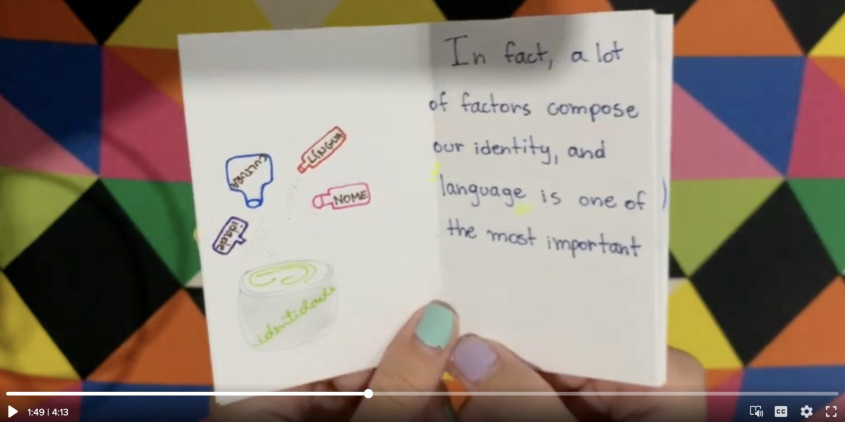 CULTURA
NOME
idade
identidade
In fact, a lot
of factors compose
our identity, and
language is one of
the most important
1:49 | 4:13
CC